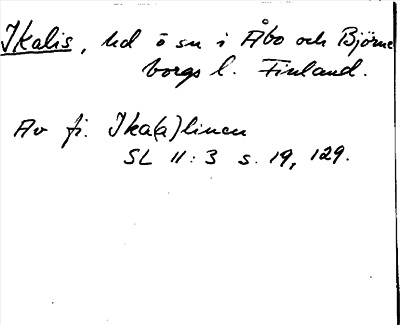 Ikalis, hd o sn i Åbo och Björne
borgs l. Finland.
Av fi. Ika(a)linen
SL 11:3 s. 19, 129.